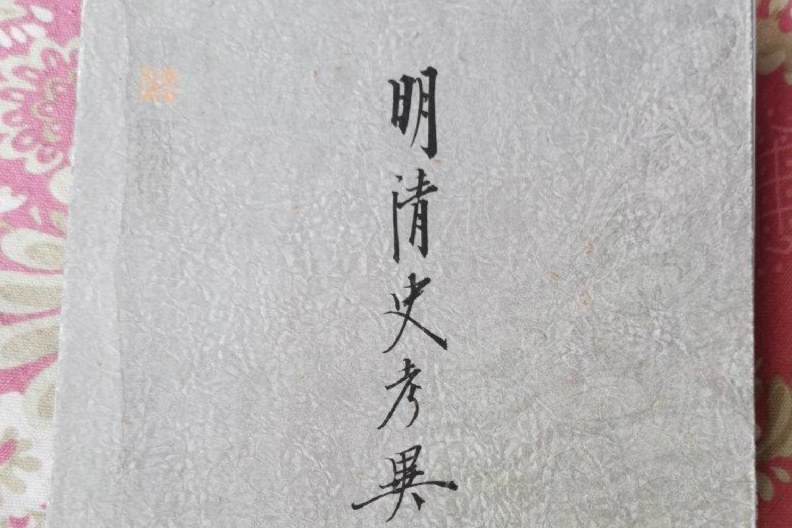 明清史考異